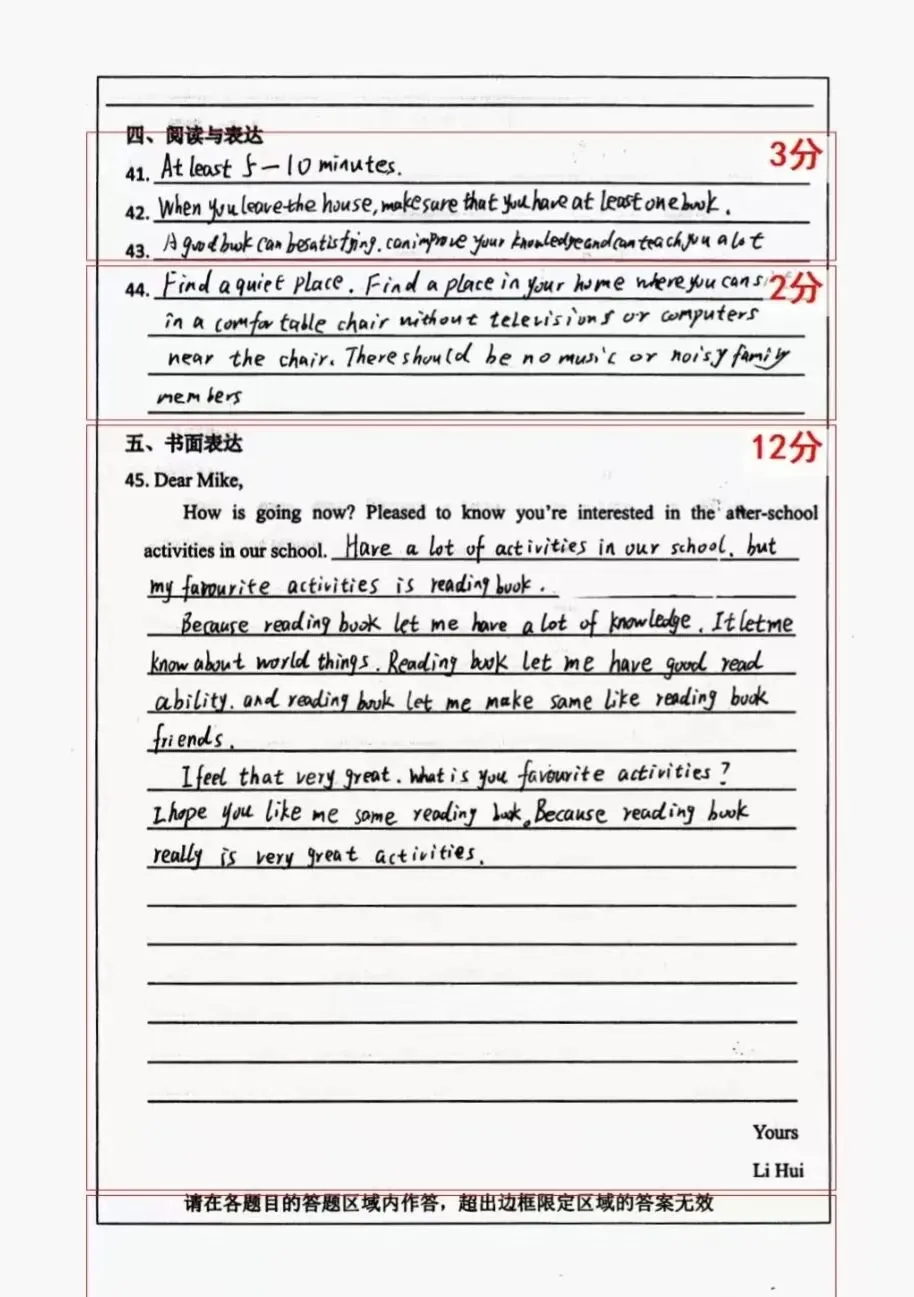 四、阅读与表达
3分
41. At least 5—10 minutes.
42. When you leave the house, make sure that you have at least one book.
43. A good book can be satisfying. can improve your knowledge and can teach you a lot
44. Find a quiet place. Find a place in your home where you can
2分
in a comfortable chair without televisions or computers
near the chair. There should be no music or noisy family
members
五、书面表达
12分
45. Dear Mike,
How is going now? Pleased to know you're interested in the after-school
activities in our school. Have a lot of activities in our school, but
my favourite activities is reading book.
Because reading book let me have a lot of knowledge. It let me
know about world things. Reading book let me have good read
ability. and reading book let me make same like reading book
friends.
I feel that very great. What is you favourite activities?
I hope you like me same reading book. Because reading book
really is very great activities.
Yours
Li Hui
请在各题目的答题区域内作答，超出边框限定区域的答案无效